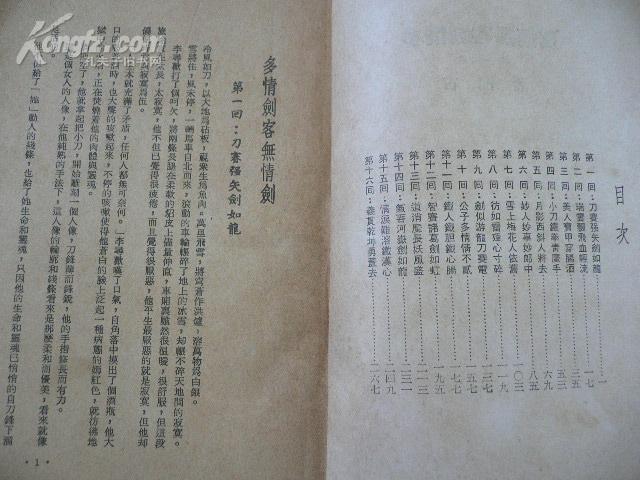 Kongfz.com
孔夫子旧书网
目次
第一回：刀賽强矢劍如龍……一
第二回：瑞雲飄飛血輕流……一七
第三回：美人寶甲穿腸酒……三五
第四回：小刀鐵拳青魔手……五三
第五回：月影西斜人將去……六九
第六回：妙人妙事妙郎中……八五
第七回：雪上梅花人依舊……一〇三
第八回：彷如雷殛心寸碎……一一九
第九回：劍似游龍刀賽電……一三七
第十回：公子多情情不貳……一五七
第十一回：鐵人鐵胆鐵心腸……一七七
第十二回：智賽諸葛劍如虹……一九五
第十三回：道消魔長妖風盛……二一三
第十四回：氣吞河嶽劍如龍……二三一
第十五回：情淚難溶鐵漢心……二四九
第十六回：義貫乾坤勇蓋去……二六七
多情劍客無情劍
第一回：刀賽强矢劍如龍
冷風如刀，以大地爲砧板，視衆生爲魚肉。萬里飛雪，將穹蒼作洪爐，溶萬物爲白銀。
雪將住，風未停，一輛馬車自北而來，滾動的車輪輾碎了地上的冰雪，却輾不碎天地間的寂寞。
李尋歡打了個呵欠，將兩條長腿在柔軟的貂皮上儘量伸直，車廂裏雖然很溫暖，很舒服，但這段
旅途實在太長，太寂寞，他不但已覺得很疲倦，而且覺得很厭惡，他平生最厭惡的就是寂寞，但他却
時常與寂寞爲伍。
本就充滿了矛盾，任何人都無可奈何。」李尋歡嘆了口氣，自角落中摸出了個酒瓶，他大
口的 時，也大聲的咳嗽起來，不停的咳嗽使得他蒼白的臉上泛起一種病態的嫣紅色，就彷彿地
獄 正在焚燒着他的肉體與靈魂。
空了，他就拿起把小刀，開始雕刻一個人像，刀鋒薄而鋒銳，他的手指修長而有力。
是個女人的人像，在他純熟的手法下，這人像的輪廓和綫條看來是那麽柔和而優美，看來就像
他不但給了「她」動人的綫條，也給了她生命和靈魂，只因他的生命和靈魂已悄悄的自刀鋒下溜
•1•